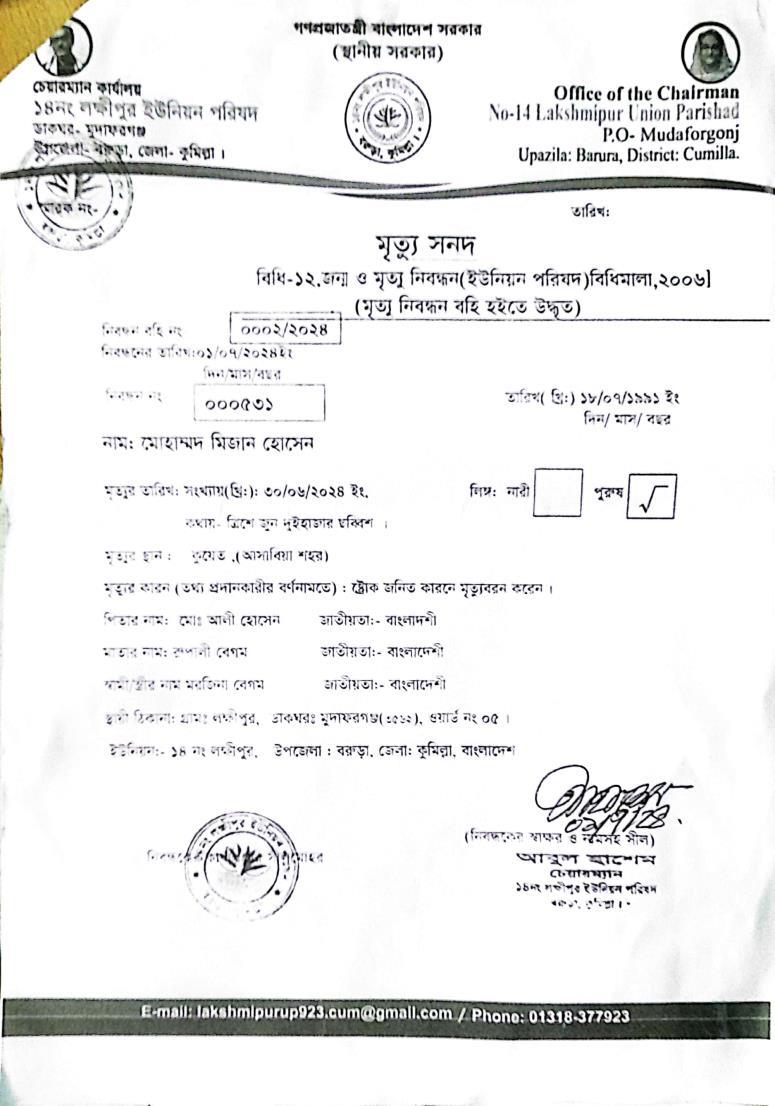 গণপ্রজাতন্ত্রী বাংলাদেশ সরকার
(স্থানীয় সরকার)
চেয়ারম্যান কার্যালয়
১৪নং লক্ষীপুর ইউনিয়ন পরিষদ
ডাকঘর- মুদাফরগঞ্জ
উপজেলা- বরুড়া, জেলা- কুমিল্লা ।
Office of the Chairman
No-14 Lakshmipur Union Parishad
P.O- Mudaforgonj
Upazila: Barura, District: Cumilla.
স্মারক নং-
তারিখ:
মৃত্যু সনদ
বিধি-১২,জন্ম ও মৃত্যু নিবন্ধন(ইউনিয়ন পরিষদ)বিধিমালা,২০০৬]
(মৃত্যু নিবন্ধন বহি হইতে উদ্ধৃত)
নিবন্ধন বহি নং ০০০২/২০২৪
নিবন্ধনের তারিখ:০১/০৭/২০২৪ইং
দিন/মাস/বছর
নিবন্ধন নং ০০০৫৩১ তারিখ( খ্রি:) ১৮/০৭/১৯৯১ ইং
দিন/ মাস/ বছর
নাম: মোহাম্মদ মিজান হোসেন
মৃত্যুর তারিখ: সংখ্যায়(খ্রি:): ৩০/০৬/২০২৪ ইং, লিঙ্গ: নারী পুরুষ √
কথায়- ত্রিশে জুন দুইহাজার ছব্বিশ ।
মৃত্যুর স্থান : কুয়েত ,(আসাবিয়া শহর)
মৃত্যুর কারন (তথ্য প্রদানকারীর বর্ণনামতে) : ষ্ট্রোক জনিত কারনে মৃত্যুবরন করেন ।
পিতার নাম: মোঃ আলী হোসেন জাতীয়তা:- বাংলাদশী
মাতার নাম: রুপালী বেগম জাতীয়তা:- বাংলাদেশী
স্বামী/স্ত্রীর নাম মরজিনা বেগম জাতীয়তা:- বাংলাদেশী
স্থায়ী ঠিকানা: গ্রামঃ লক্ষীপুর, ডাকঘরঃ মুদাফরগঞ্জ(৩৫৬২), ওয়ার্ড নং ০৫ ।
ইউনিয়ন:- ১৪ নং লক্ষীপুর, উপজেলা : বরুড়া, জেলা: কুমিল্লা, বাংলাদেশ
(নিবন্ধকের স্বাক্ষর ও নামসহ সীল)
আবুল হাশেম
চেয়ারম্যান
১৪নং লক্ষীপুর ইউনিয়ন পরিষদ
বরুড়া, কুমিল্লা ।
E-mail: lakshmipurup923.cum@gmail.com / Phone: 01318-377923